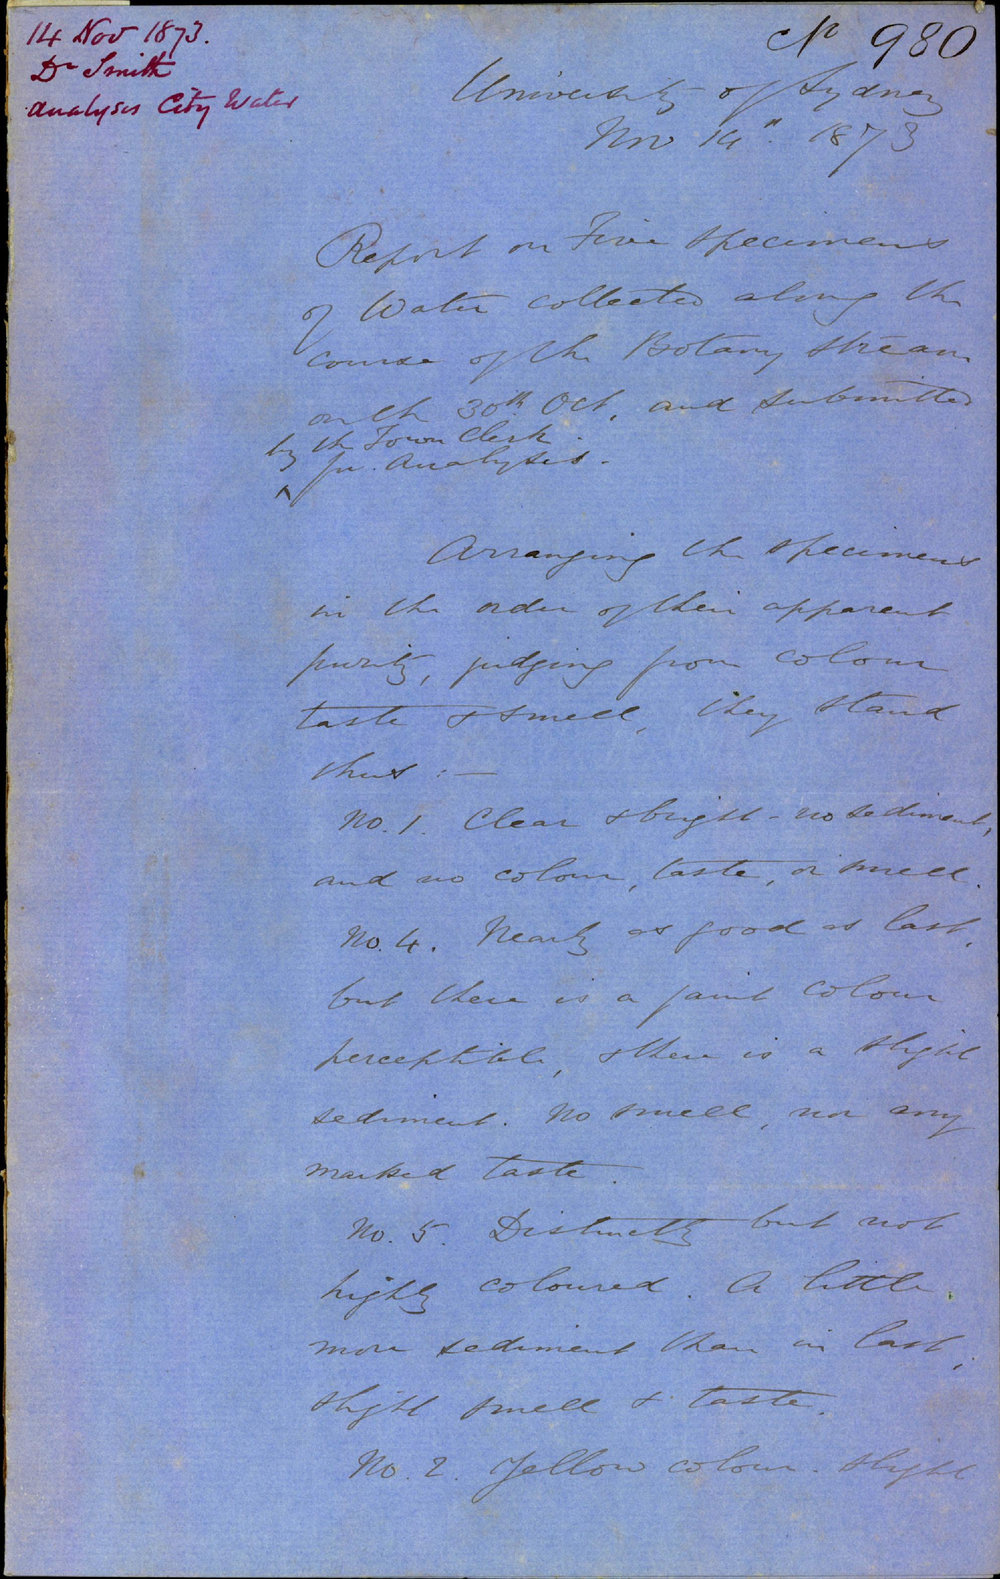 14 Nov 1873.
Dr Smith
Analyses City Water
No 980
University of Sydney
Nov 14" 1873
Report on Five specimens
of Water collected along the
course of the Botany Stream
on the 30th Oct, and submitted
by the Town Clerk
^ for Analysis.
Arranging the specimens
in the order of their apparent
purity, judging from colour
taste & smell, they stand
thus :—
No. 1. Clear & bright - no sediment,
and no colour, taste, or smell.
No. 4. Nearly as good as last,
but there is a faint colour
perceptible, & there is a slight
sediment. No smell, nor any
marked taste.
No. 5. Distinctly but not
highly coloured. A little
more sediment than in last,
slight smell & taste.
No. 2. Yellow colour. Slight